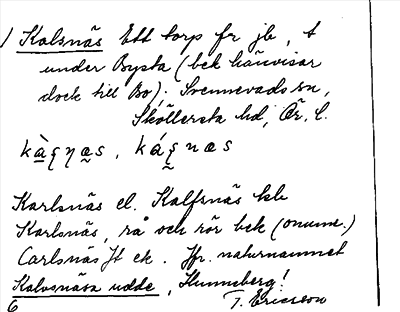 Kalsnäs Ett torp fr jb, t
under Bysta (bek hänvisar
dock till Bo); Svennevads sn,
Sköllersta hd, Ör. l.
Karlsnäs el. Kalfsnäs hk
Karlsnäs, rå och rör bek (onumr.)
Carlsnäs Jt ek. Jfr. naturnamnet
Kalvsnäsa udde, Hunneberg!
T. Ericsson
6